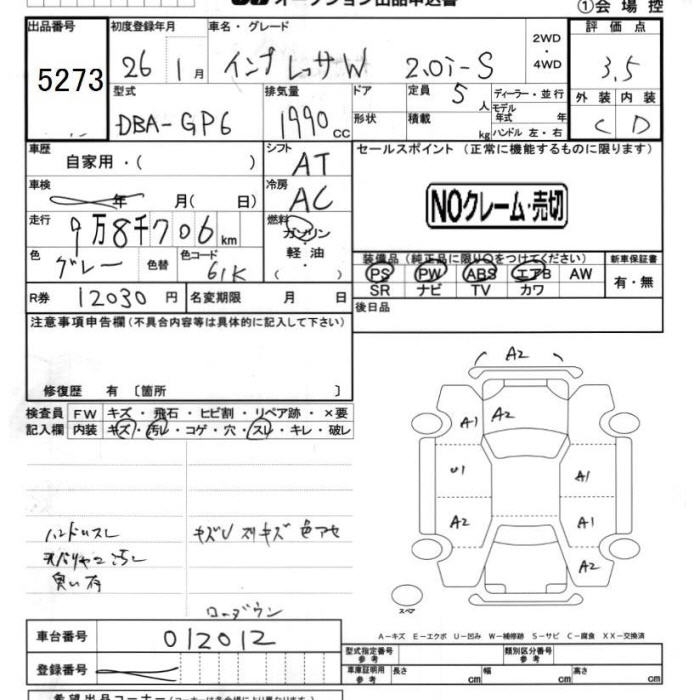 オークション出品申込書
①会場控
出品番号 初度登録年月 車名・グレード 評価点
5273 26 1月 インプレッサW 2.0i-S 2WD・4WD 3.5
型式 排気量 ドア 定員 5人 ディーラー・並行 外装 内装
DBA-GP6 1990cc 形状 積載 kg モデル年式 年 C D
ハンドル 左・右
車歴 自家用・( ) シフト AT セールスポイント (正常に機能するものに限ります)
車検 年 月( 日) 冷房 AC
NOクレーム・売切
走行 9万8千706km 燃料 ガソリン・軽油・( )
色 グレー 色替 色コード 61K
装備品 (純正品に限り○をつけてください) 新車保証書
PS PW ABS エアB AW 有・無
SR ナビ TV カワ
R券 12030円 名変期限 月 日
後日品
注意事項申告欄 (不具合内容等は具体的に記入して下さい)
修復歴 有 〔箇所 〕
検査員 FW キズ・飛石・ヒビ割・リペア跡・×要
記入欄 内装 キズ・汚レ・コゲ・穴・スレ・キレ・破レ
A2
A1 A2
U1 A1
A2 A1
A2
スペア
ハンドルスレ キズU スリキズ 色アセ
天バリヤケ汚レ
臭い有
ローダウン
A-キズ E-エクボ U-凹み W-補修跡 S-サビ C-腐食 XX-交換済
車台番号 012012
型式指定番号 参考 類別区分番号 参考
登録番号
車庫証明用 参考 長さ cm 幅 cm 高さ cm
希望出品コーナー